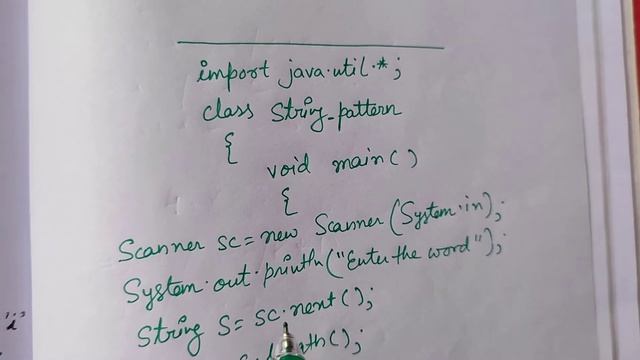 import java.util.*;
class String_pattern
{
void main()
{
Scanner sc = new Scanner(System.in);
System.out.println("Enter the word");
String S = sc.next();